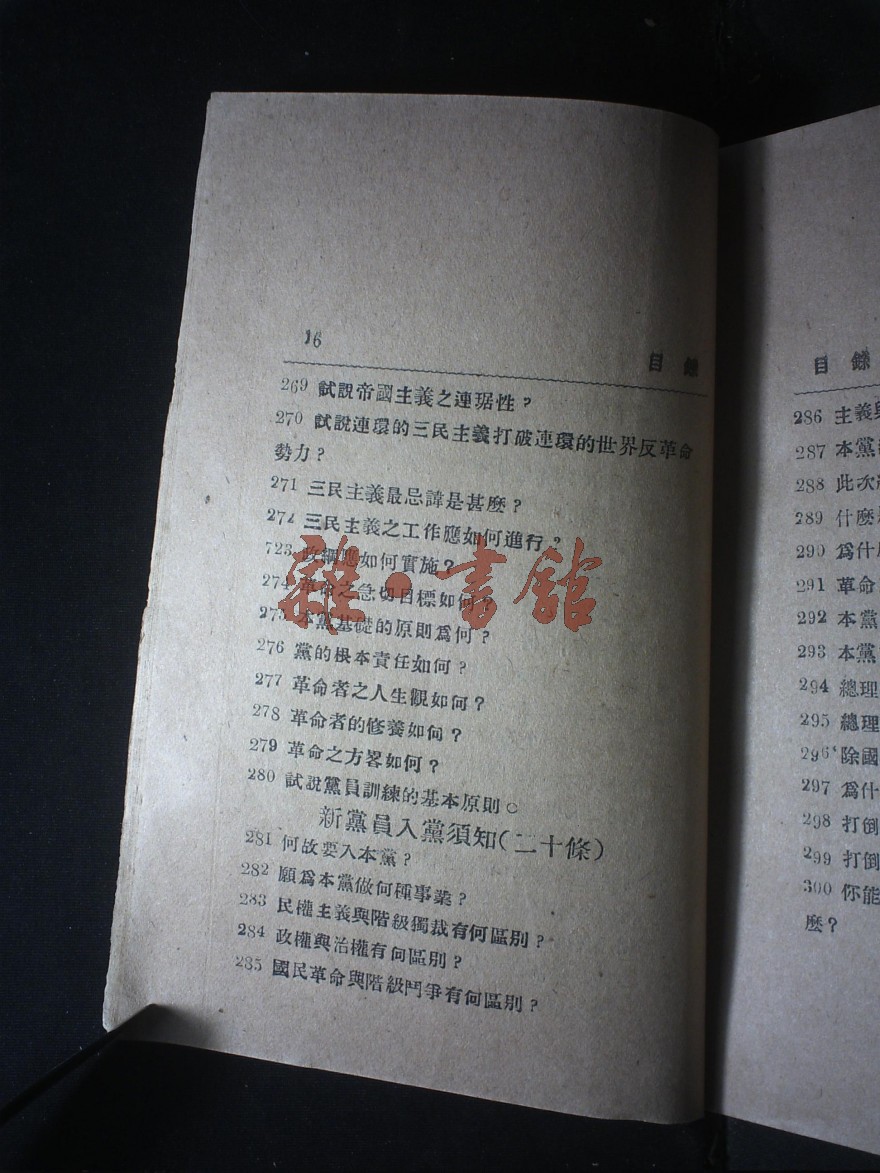 16
目錄
269 試說帝國主義之連琚性？
270 試說連環的三民主義打破連環的世界反革命
勢力？
271 三民主義最忌諱是甚麼？
272 三民主義之工作應如何進行？
723 政綱應如何實施？
274 革命之急切目標如何？
275 本黨基礎的原則爲何？
276 黨的根本責任如何？
277 革命者之人生觀如何？
278 革命者的修養如何？
279 革命之方畧如何？
280 試說黨員訓練的基本原則○
新黨員入黨須知（二十條）
281 何故要入本黨？
282 願爲本黨做何種事業？
283 民權主義與階級獨裁有何區別？
284 政權與治權有何區別？
285 國民革命與階級鬥爭有何區別？
雜·書館
目錄
286 主義
287 本黨
288 此次
289 什麼
290 爲什
291 革命
292 本黨
293 本黨
294 總理
295 總理
296 除國
297 爲什
298 打倒
299 打倒
300 你能
麼？